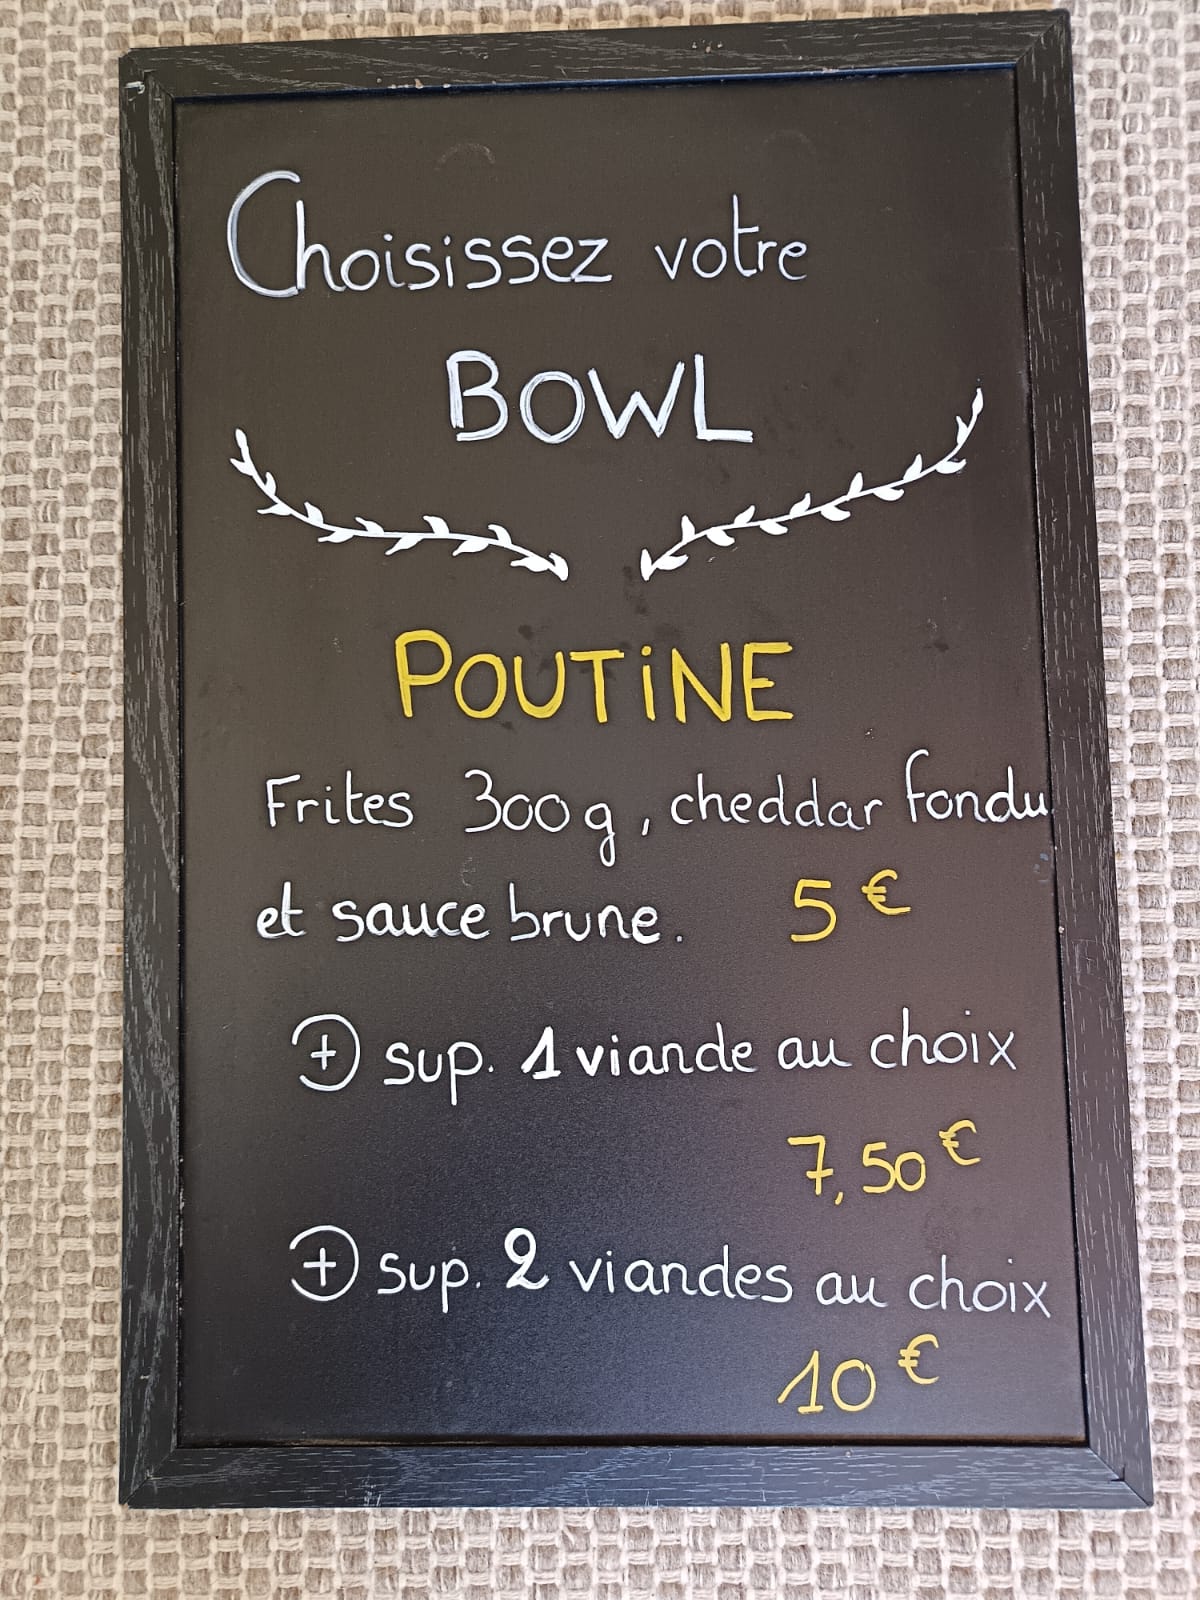 Choisissez votre
BOWL
POUTiNE
Frites 300g, cheddar fondu
et sauce brune. 5 €
+ sup. 1 viande au choix
7,50 €
+ sup. 2 viandes au choix
10 €